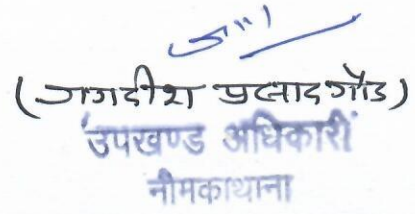 (जगदीश प्रसाद गौड)
उपखण्ड अधिकारी
नीमकाथाना